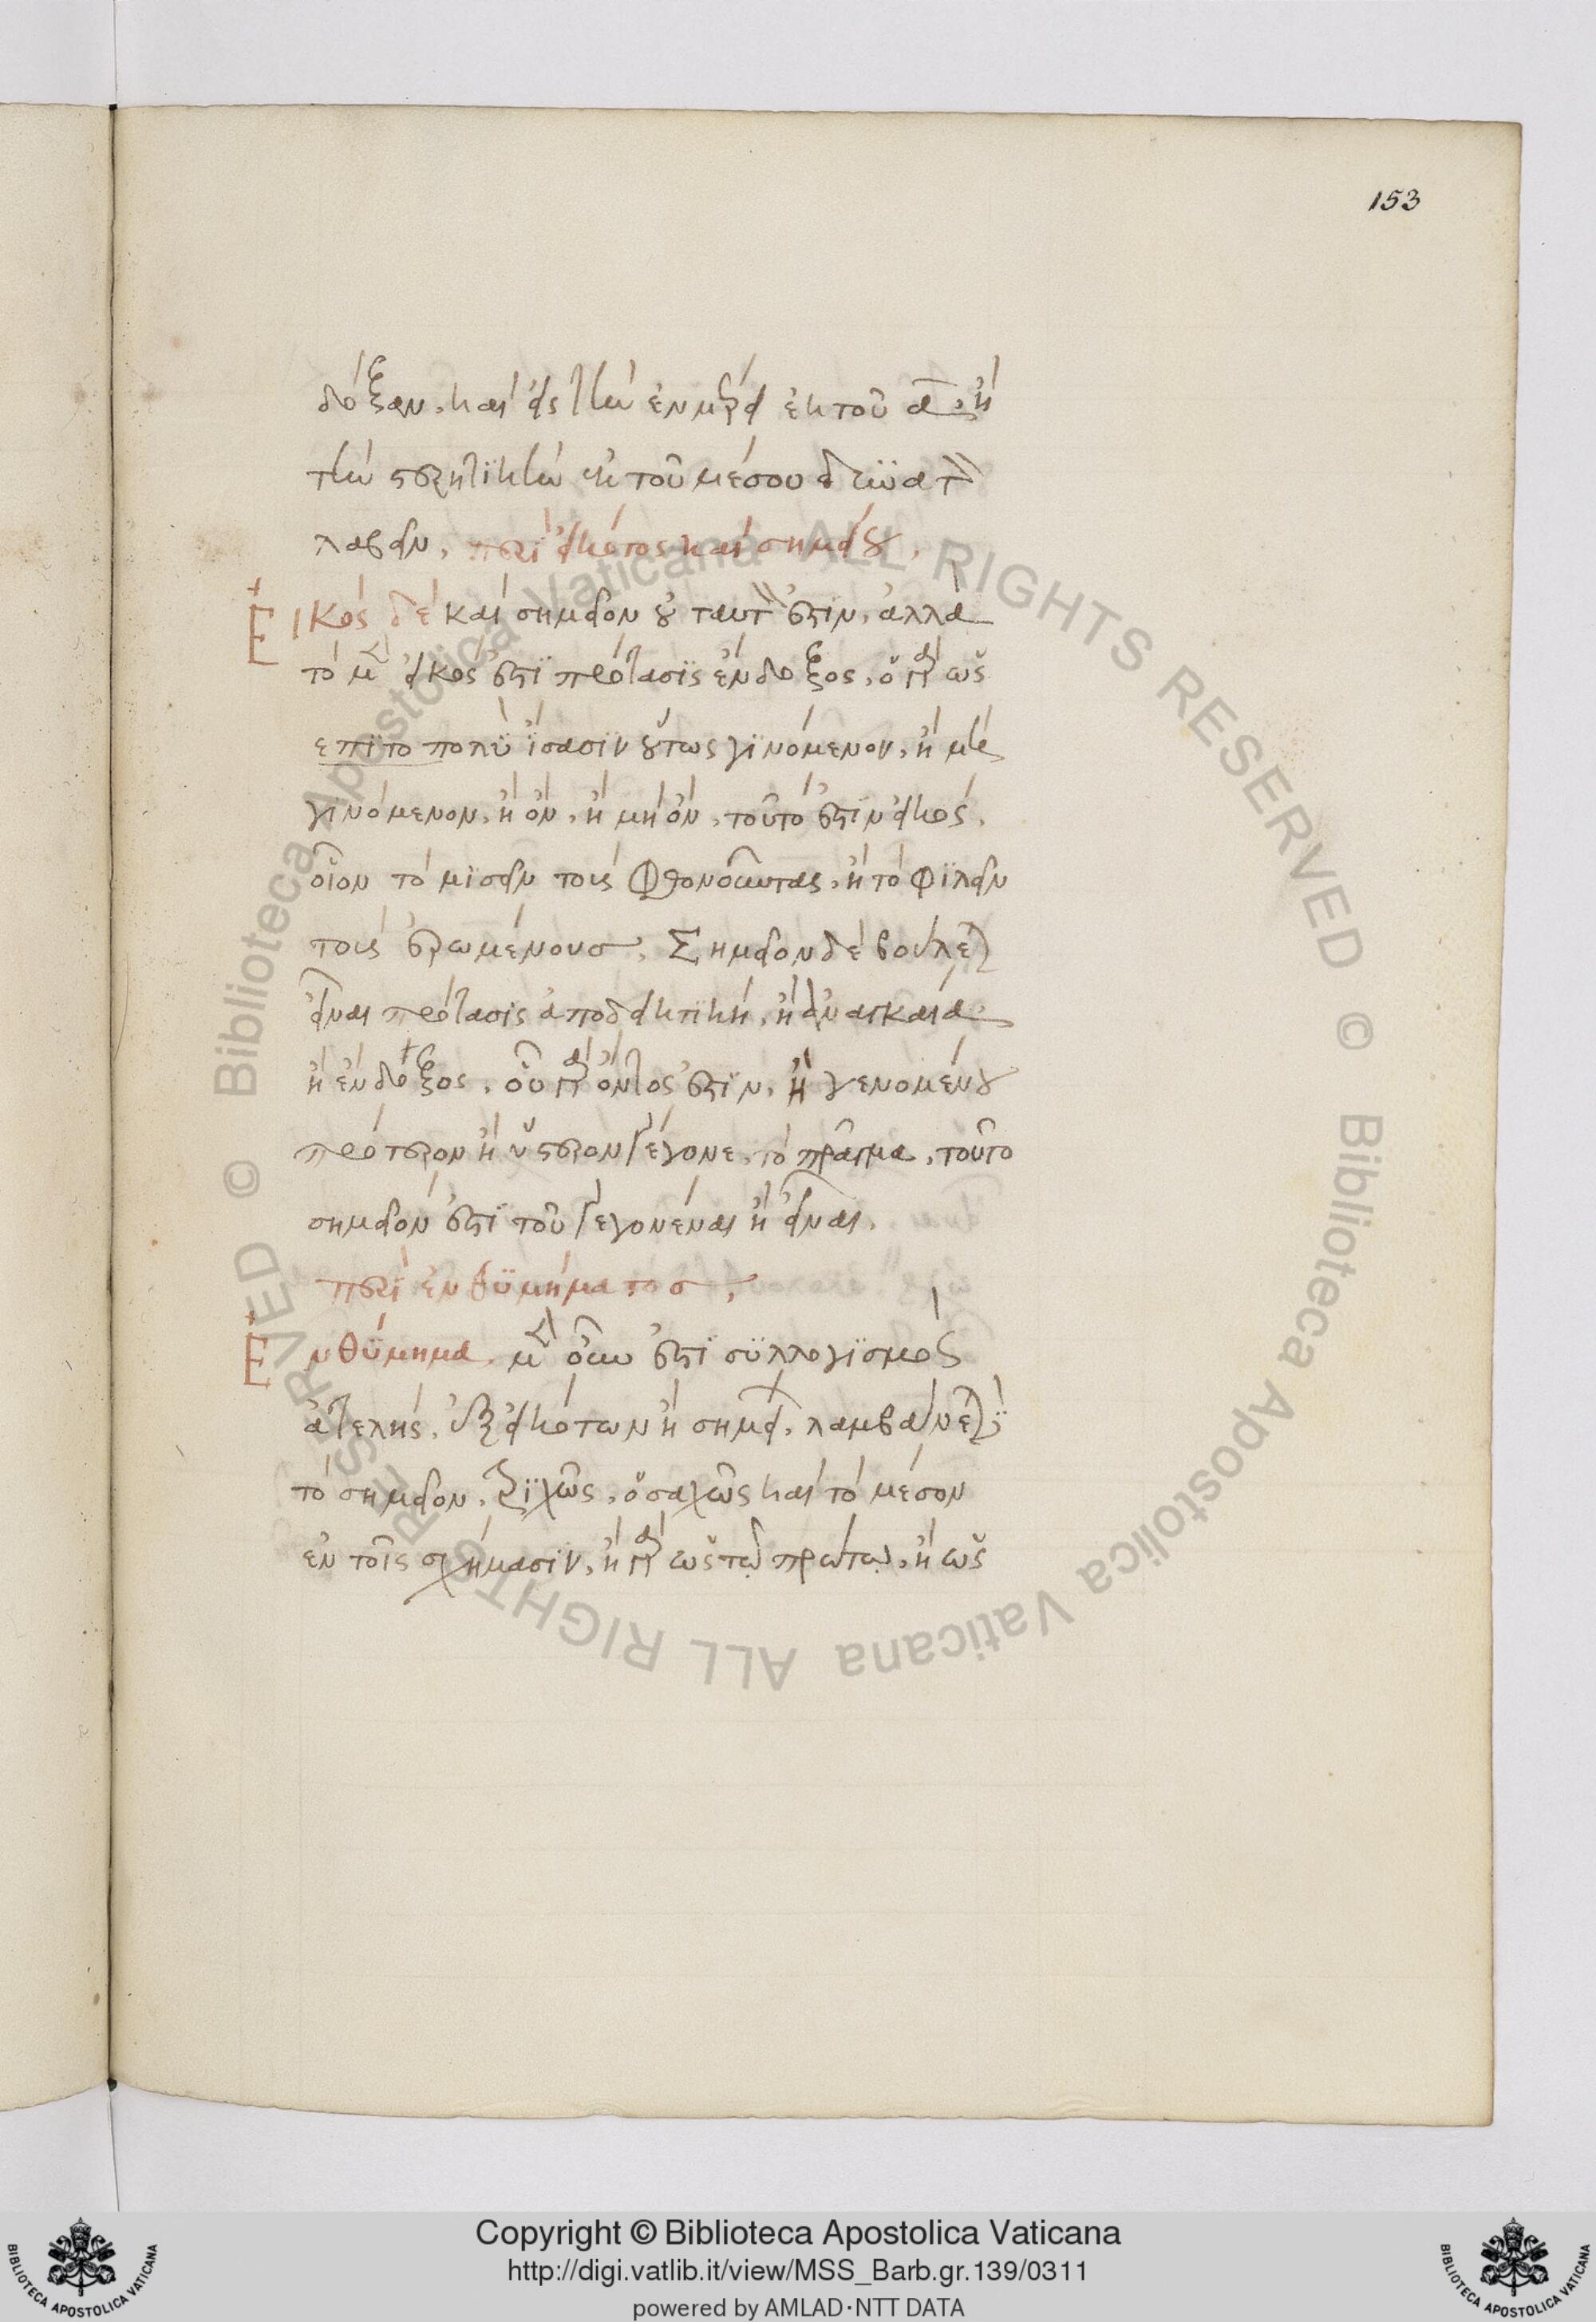 153
δόξαν, καὶ εἰς τὴν ἐν μέρει ἐκ τοῦ α, ἢ
τὴν στερητικὴν ἐκ τοῦ μέσου δύνατ
λαβεῖν, περὶ εἰκότος καὶ σημείου,
Εἰκὸς δὲ καὶ σημεῖον οὐ ταυτόν ἐστιν, ἀλλὰ
τὸ μὲν εἰκὸς ἐστὶ πρότασις ἔνδοξος, ὃ γὰρ ὡς
επιτο πολὺ ἴσασιν οὕτως γινόμενον, ἢ μὴ
γινόμενον, ἢ ὂν, ἢ μὴ ὂν, τοῦτό ἐστὶν εἰκός,
οἷον τὸ μισεῖν τοὺς φθονοῦντας, ἢ τὸ φιλεῖν
τοὺς ἐρωμένους, Σημεῖον δὲ βούλεται
εἶναι πρότασις ἀποδεικτικὴ, ἢ ἀναγκαία
ἢ ἔνδοξος, οὗ γὰρ ὄντος ἐστὶν, ἢ γενομένου
πρότερον ἢ ὕστερον γέγονε, τὸ πρᾶγμα, τοῦτο
σημεῖόν ἐστὶ τοῦ γεγονέναι ἢ εἶναι,
περὶ ἐνθυμήματος,
Ενθύμημα μὲν οὖν ἐστὶ συλλογισμὸς
ἀτελὴς, ἐξ εἰκότων ἢ σημείων, λαμβάνεται
τὸ σημεῖον, τριχῶς, ὁσαχῶς καὶ τὸ μέσον
ἐν τοῖς σχήμασιν, ἢ γὰρ ὡς τῷ πρώτῳ, ἢ ὡς
© Biblioteca Apostolica Vaticana ALL RIGHTS RESERVED © Biblioteca Apostolica Vaticana ALL RIGHTS RESERVED
BIBLIOTECA APOSTOLICA VATICANA
Copyright © Biblioteca Apostolica Vaticana
http://digi.vatlib.it/view/MSS_Barb.gr.139/0311
powered by AMLAD·NTT DATA
BIBLIOTECA APOSTOLICA VATICANA